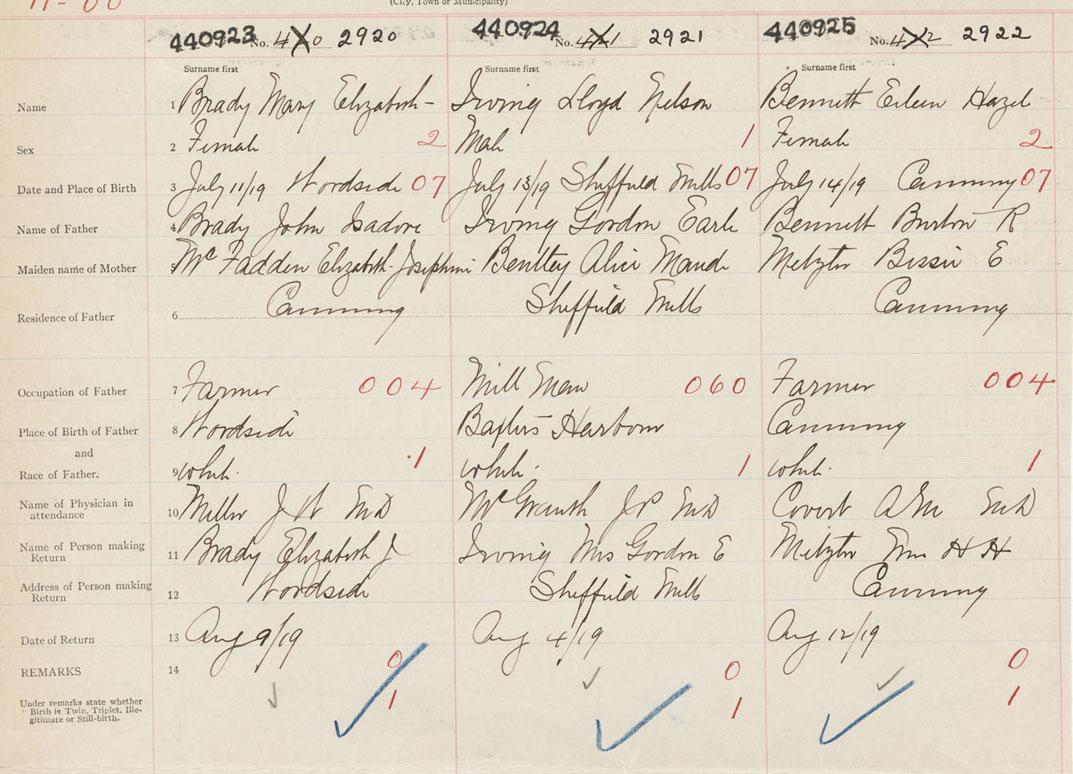 11-00
(City, Town or Municipality)
440923 No. 4X0 2920 440924 No. 4X1 2921 440925 No. 4X2 2922
Surname first Surname first Surname first
Name 1 Brady Mary Elizabeth Irving Lloyd Nelson Bennett Eileen Hazel
Sex 2 Female 2 Male 1 Female 2
Date and Place of Birth 3 July 11/19 Woodside 07 July 13/19 Sheffield Mills 07 July 14/19 Canning 07
Name of Father 4 Brady John Isadore Irving Gordon Earle Bennett Burton R
Maiden name of Mother 5 McFadden Elizabeth Josephine Bentley Alice Maude Metzler Bessie E
Residence of Father 6 Canning Sheffield Mills Canning
Occupation of Father 7 Farmer 004 Mill Man 060 Farmer 004
Place of Birth of Father 8 Woodside Baxters Harbour Canning
and
Race of Father. 9 White 1 White 1 White 1
Name of Physician in
attendance 10 Miller J W MD McGrath J P MD Covert A M MD
Name of Person making
Return 11 Brady Elizabeth J Irving Mrs Gordon E Metzler Wm H H
Address of Person making
Return 12 Woodside Sheffield Mills Canning
Date of Return 13 Aug 9/19 Aug 4/19 Aug 12/19
REMARKS 14 0 0 0
Under remarks state whether
Birth is Twin, Triplet, Ille-
gitimate or Still-birth. 1 1 1